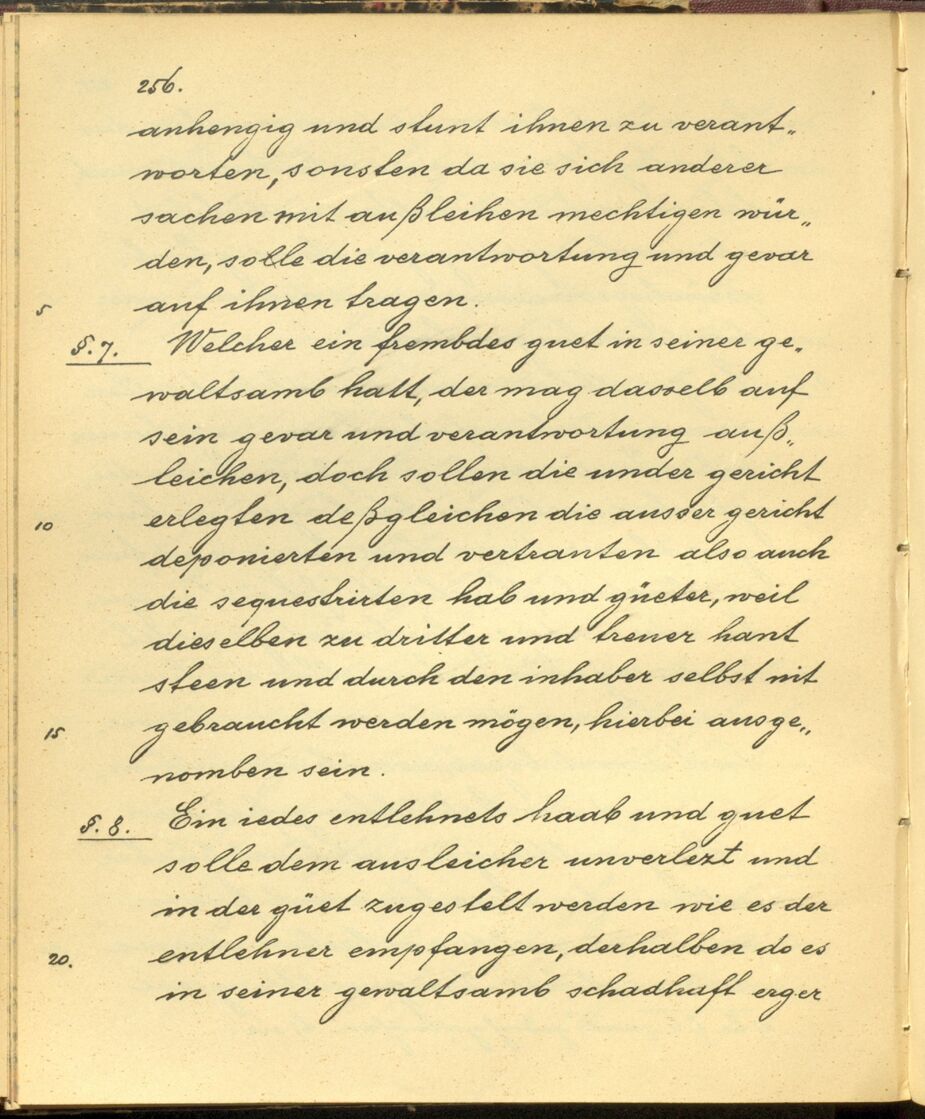 256.
anhengig und stunt ihnen zu verant„
worten, sonsten da sie sich anderer
sachen mit außleihen mechtigen wür„
den, solle die verantwortung und gevar
5 auf ihnen tragen.
§. 7. Welcher ein frembdes guet in seiner ge„
waltsamb hatt, der mag dasselb auf
sein gevar und verantwortung auß„
leichen, doch sollen die under gericht
10 erlegten deßgleichen die ausser gericht
deponierten und vertrauten also auch
die sequestrirten hab und güeter, weil
dieselben zu dritter und treuer hant
steen und durch den inhaber selbst nit
15 gebraucht werden mögen, hierbei ausge„
nomben sein.
§. 8. Ein iedes entlehnets haab und guet
solle dem ausleicher unverlezt und
in der güet zugestelt werden wie es der
20. entlehner empfangen, derhalben do es
in seiner gewaltsamb schadhaft erger